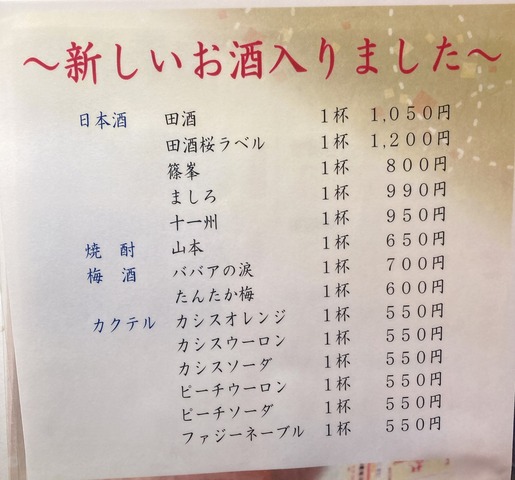 ～新しいお酒入りました～
日本酒 田酒 1杯 1,050円
田酒桜ラベル 1杯 1,200円
篠峯 1杯 800円
ましろ 1杯 990円
十一州 1杯 950円
焼酎 山本 1杯 650円
梅酒 ババアの涙 1杯 700円
たんたか梅 1杯 600円
カクテル カシスオレンジ 1杯 550円
カシスウーロン 1杯 550円
カシスソーダ 1杯 550円
ピーチウーロン 1杯 550円
ピーチソーダ 1杯 550円
ファジーネーブル 1杯 550円